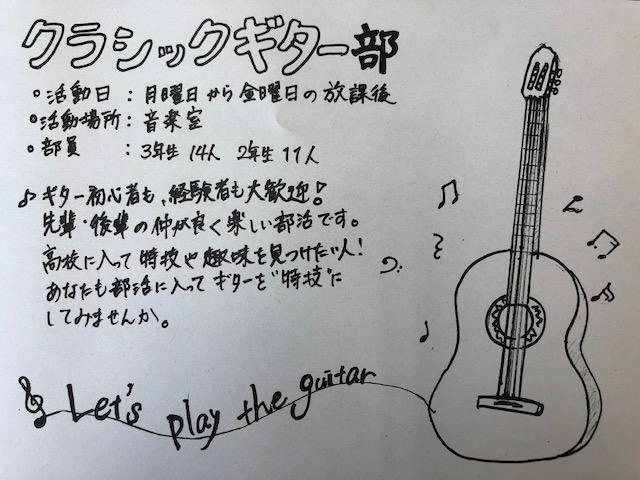 クラシックギター部
○活動日 : 月曜日から金曜日の放課後
○活動場所 : 音楽室
○部員 : 3年生 14人 2年生 11人
♪ギター初心者も、経験者も大歓迎!
先輩・後輩の仲が良く楽しい部活です。
高校に入って特技や趣味を見つけたい人!
あなたも部活に入ってギターを"特技"に
してみませんか。
Let's play the guitar